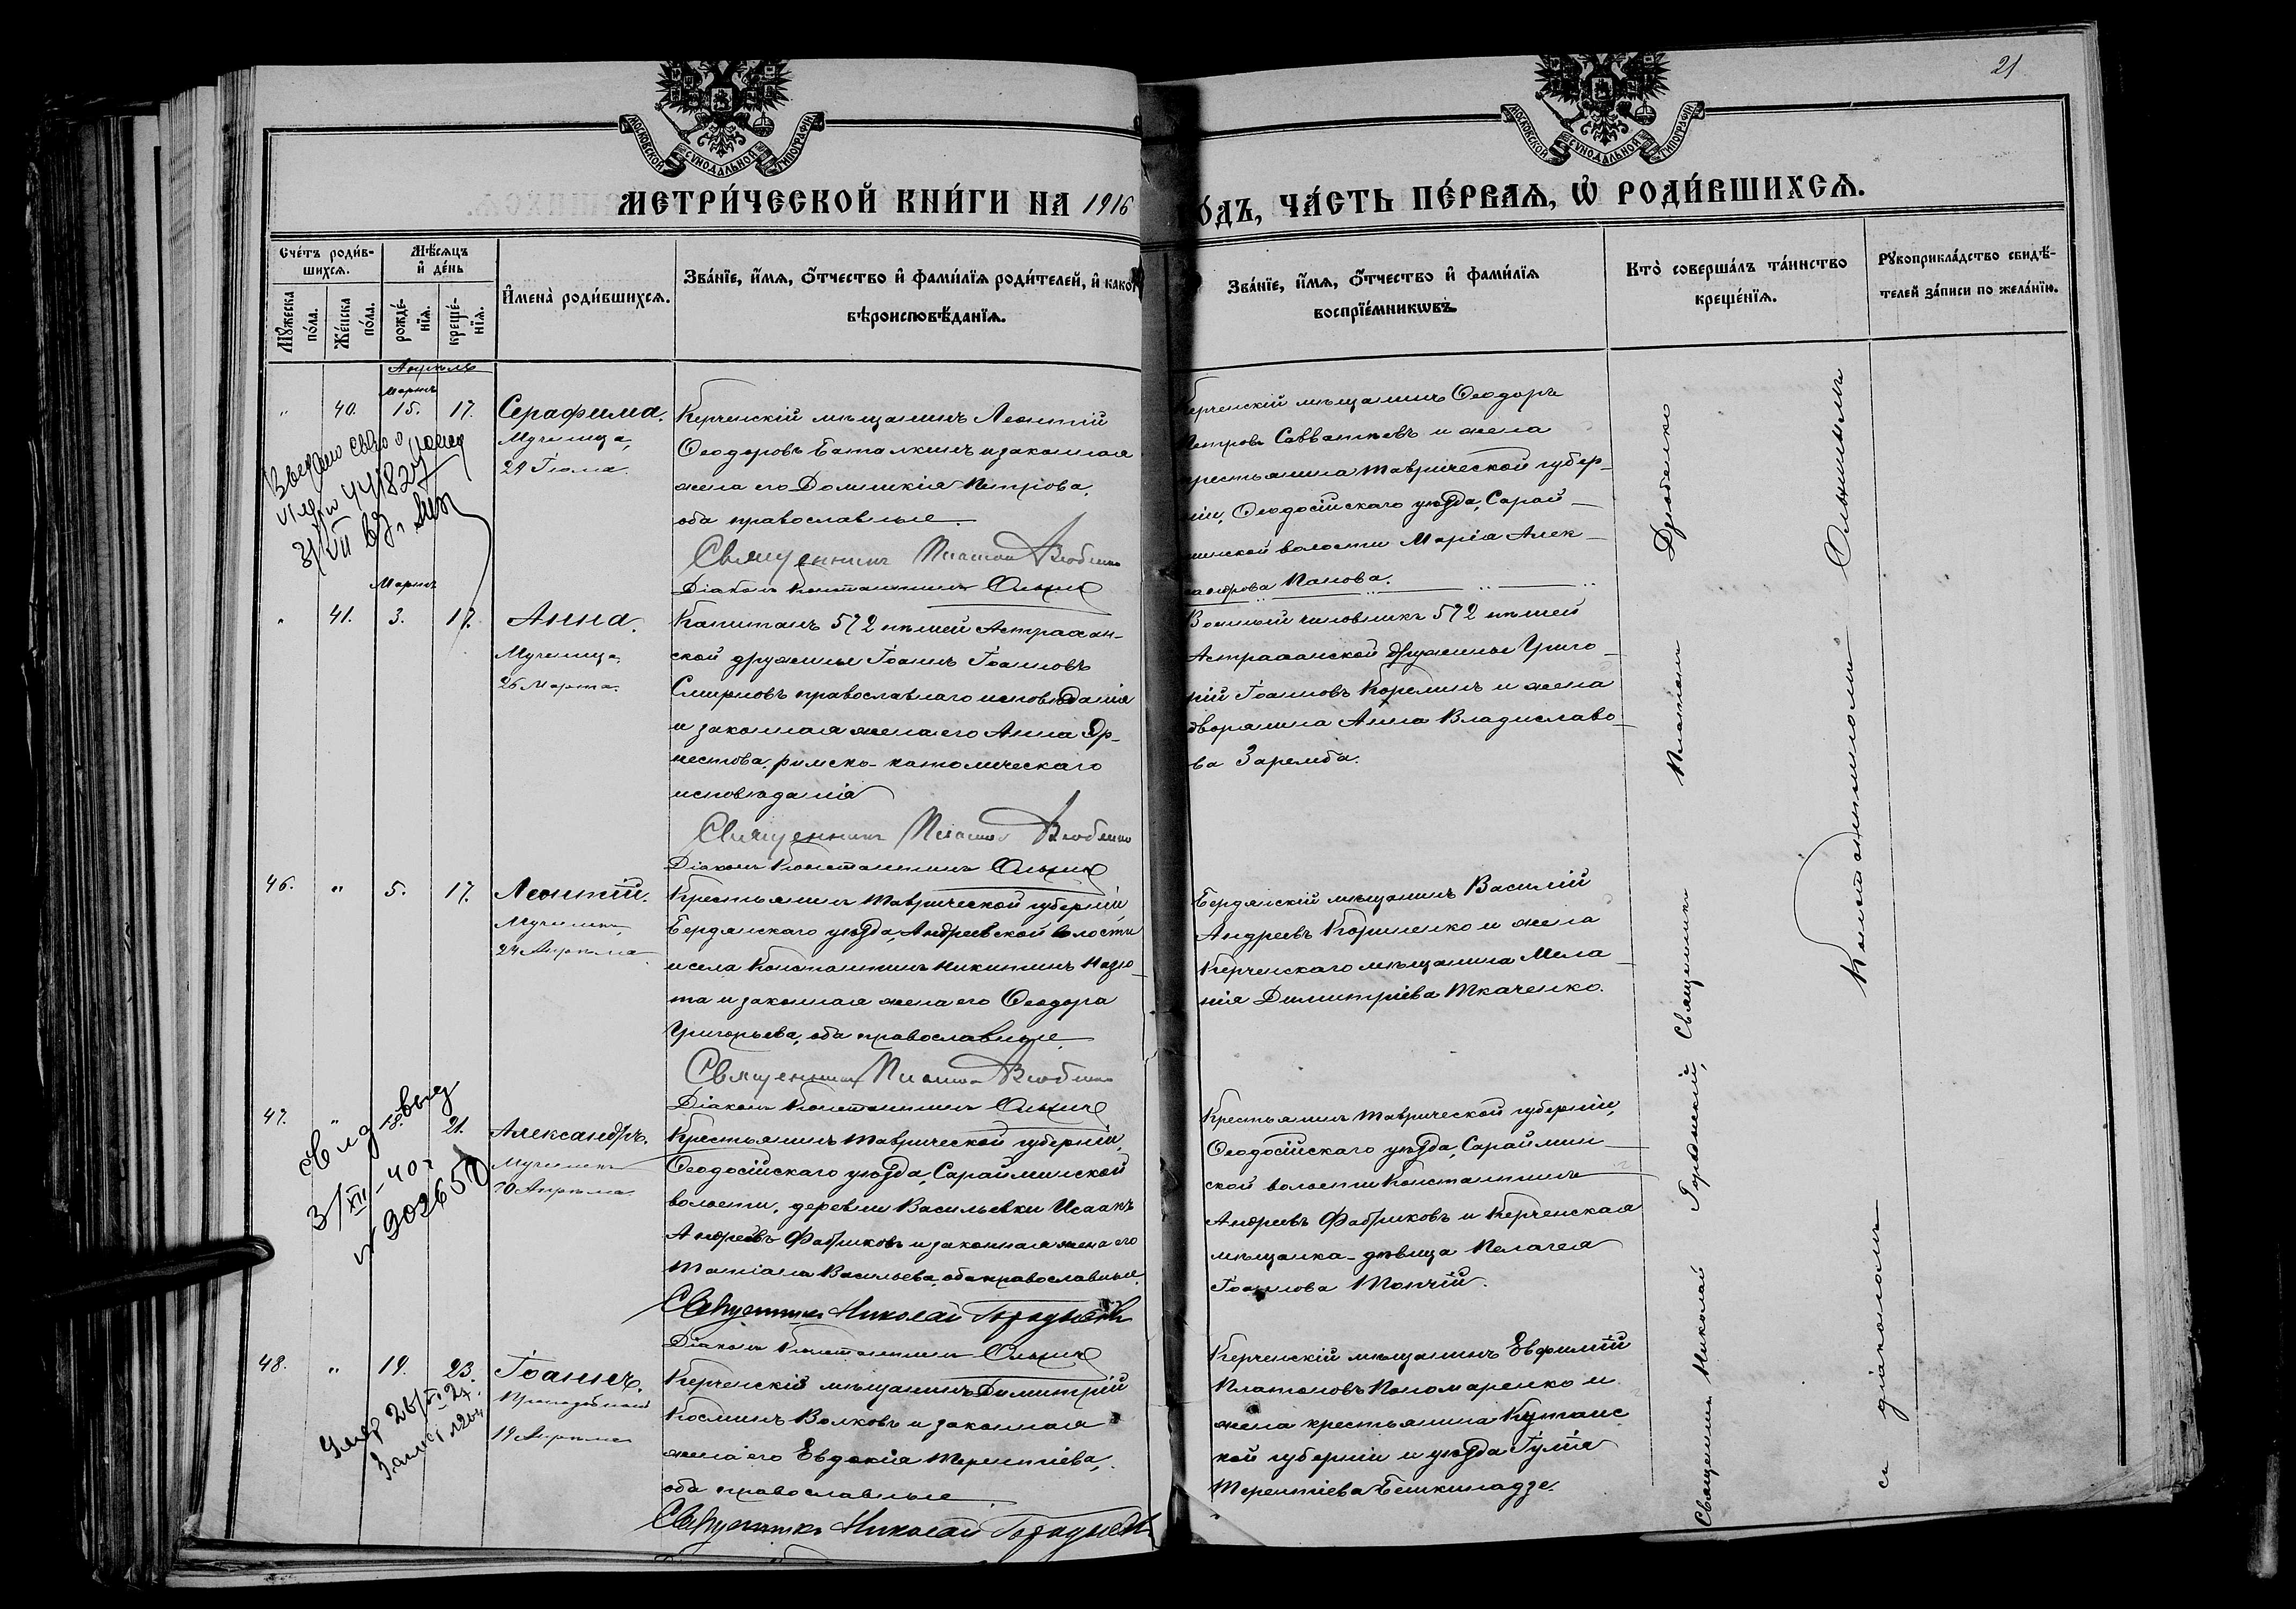 21
МОСКОВСКОЙ СѴНОДАЛЬНОЙ ТИПОГРАФІИ
МОСКОВСКОЙ СѴНОДАЛЬНОЙ ТИПОГРАФІИ
МЕТРИ́ЧЕСКОЙ КНИ́ГИ НА 1916
ОДЪ, ЧА́СТЬ ПЕ́РВАѦ, Ѡ҆ РОДИ́ВШИХСѦ.
Сче́тъ роди́в-
шихсѧ.
Мꙋ́жеска по́ла.
Же́нска по́ла.
Мѣ́сѧцъ
и҆ де́нь
рожде́-
нїѧ.
креще́-
нїѧ.
И҆мена̀ роди́вшихсѧ.
Зва́нїе, и҆́мѧ, ѻ҆́тчество и҆ фами́лїѧ роди́телей, и҆ како
вѣроисповѣ́данїѧ.
Зва́нїе, и҆́мѧ, ѻ҆́тчество и҆ фами́лїѧ
воспрїе́мникѡвъ.
Кто̀ соверша́лъ та́инство
креще́нїѧ.
Рꙋкоприкла́дство свидѣ́-
телей за́писи по жела́нїю.
Апрѣль
Мартъ
" 40. 15. 17. Серафима.
Мученица,
29 Іюля.
Керченскій мѣщанинъ Леонтій
Ѳеодоровъ Баталкинъ и законная
жена его Домникія Петрова,
оба православные.
Священникъ Платонъ
Діаконъ Константинъ
ерченскій мѣщанинъ Ѳеодоръ
Петровъ Савватѣевъ и жена
рестьянина Таврической губер-
ніи, Ѳеодосійскаго уѣзда, Сарай-
минской волости Марія Алек-
сандрова Панова.
31/VII
Мартъ
" 41. 3. 17. Анна.
Мученица,
26 Марта.
Капитанъ 572 пѣшей Астрахан-
ской дружины Іоаннъ Іоанновъ
Смирновъ православнаго исповѣданія
и законная жена его Анна Эр-
нестова, римско-католическаго
исповѣданія
Священникъ Платонъ
Діаконъ Константинъ
Военный чиновникъ 572 пѣшей
Астраханской дружины Григо-
рій Іоанновъ Корелинъ и жена
дворянина Анна Владиславо-
ва Заремба.
46. " 5. 17. Леонтій.
Мученикъ
24 Апрѣля.
Крестьянинъ Таврической губерніи,
Бердянскаго уѣзда, Андреевской волости
и села Константинъ Никитинъ Назю-
та и законная жена его Ѳеодора
Григорьева, оба православные.
Священникъ Платонъ
Діаконъ Константинъ
Бердянскій мѣщанинъ Василій
Андреевъ Корниенко и жена
Керченскаго мѣщанина Мела-
нія Димитріева Ткаченко.
47. " 18. 21. Александръ.
Мученикъ
10 Апрѣля.
Крестьянинъ Таврической губерніи,
Ѳеодосійскаго уѣзда, Сарайминской
волости, деревни Васильевки Исаакъ
Андреевъ Фабриковъ и законная жена его
Татіана Васильева, оба православные.
Священникъ Николай Городынскій
Діаконъ Константинъ
Крестьянинъ Таврической губерніи,
Ѳеодосійскаго уѣзда, Сараймин-
ской волости Константинъ
Андреевъ Фабриковъ и Керченская
мѣщанка-дѣвица Пелагея
Іоаннова Топчій.
выд
3/XII-40 г
903650
48. " 19. 23. Іоаннъ.
Преподобный
19 Апрѣля
Керченскій мѣщанинъ Димитрій
Косминъ Волковъ и законная
жена его Евдокія Терентіева,
оба православные.
Священникъ Николай
Керченскій мѣщанинъ Евфимій
Платоновъ Пономаренко и
жена крестьянина Кутаис
кой губерніи и уѣзда Гулія
Терентіева Бешкинадзе.
Умер
Священникъ Николай Священникъ Платонъ
съ діакономъ Константиномъ